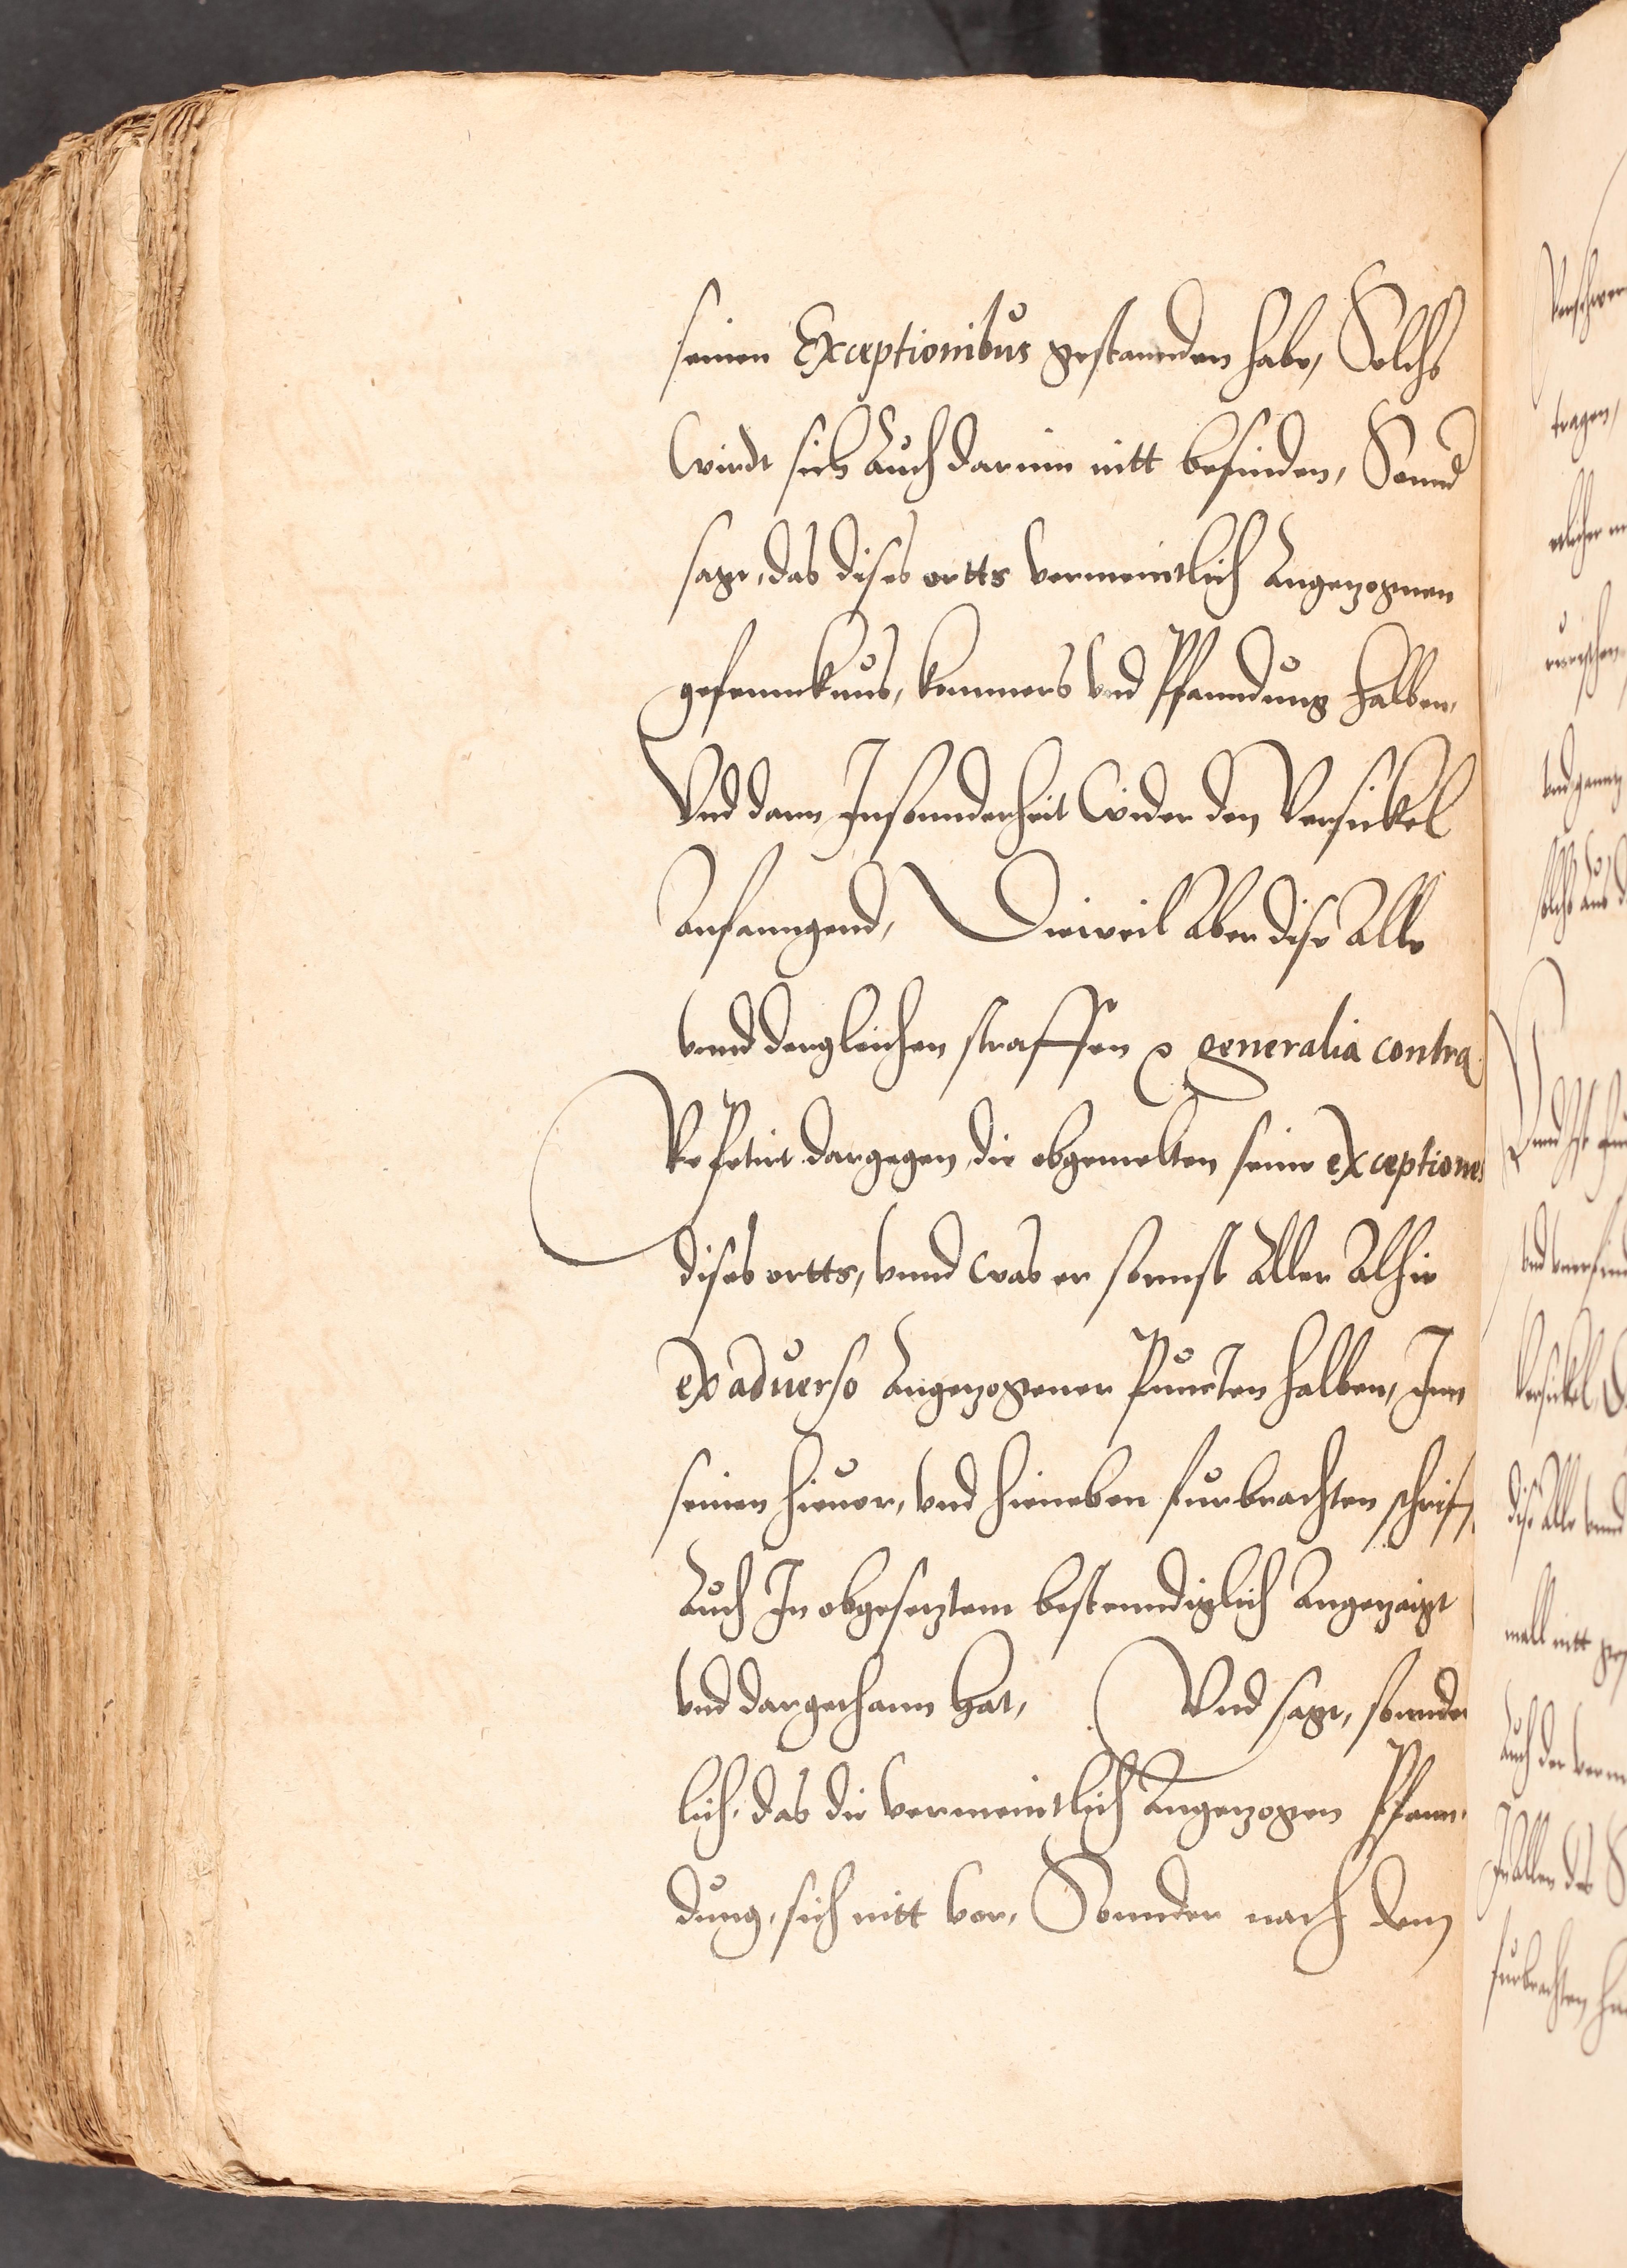 seinen Exceptionibus gestannden habe, Solchs
Wirdt sich Auch darinn nitt befinden, Sonnd
sagt, das dises ortts vermeintlich Angezognen
gefenncknus, kommers vnd Pfanndung halben,
Vnd dann Insonnderheit Wider den Versickel
Anfanngend, Dieweil Aber dise Alle
vnnd dergleichen straffen generalia contra
Repetirt dargegen, die obgemelten seine exceptiones
dises ortts, vnnd was er sonnst Aller Alhie
ex aduerso Angezogener Puncten halben, Inn
seinen hieuor, vnd hieneben furbrachten schrifft
Auch In obgesetztem bestenndiglich Angezaigt
vnd dargethann hat, Vnd sagt, sonnder
lich, das die vermeintlich Angezogen Pfann,
dung, sich nitt vor, Sonnder nach dem
tragen,
etlicher
Versickel,
dise Alle vnnd
mall nitt
Auch der
furbrachten